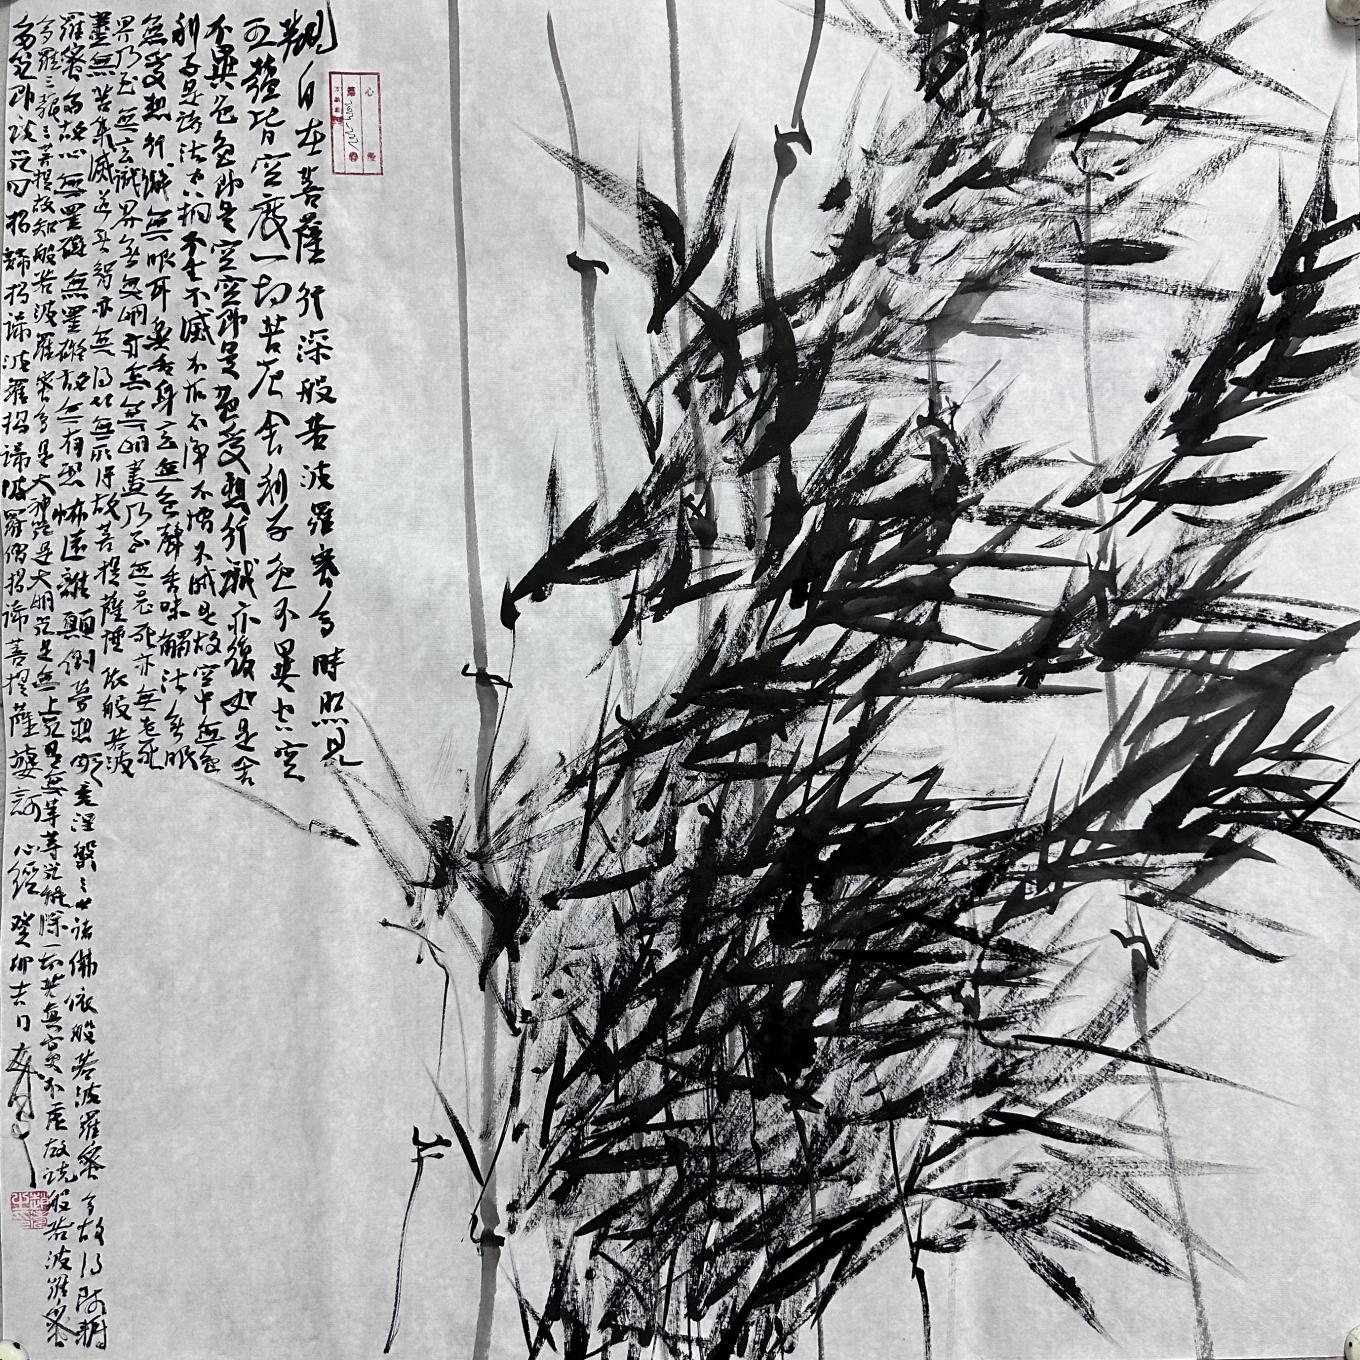 觀自在菩薩行深般若波羅蜜多時照見
五蘊皆空度一切苦厄舍利子色不異空空
不異色色即是空空即是色受想行識亦復如是舍
利子是諸法空相不生不滅不垢不淨不增不減是故空中無色
無受想行識無眼耳鼻舌身意無色聲香味觸法無眼
界乃至無意識界無無明亦無無明盡乃至無老死亦無老死
盡無苦集滅道無智亦無得以無所得故菩提薩埵依般若波
羅蜜多故心無罣礙無罣礙故無有恐怖遠離顛倒夢想究竟涅槃三世諸佛依般若波羅蜜多故得阿耨
多羅三藐三菩提故知般若波羅蜜多是大神咒是大明咒是無上咒是無等等咒能除一切苦真實不虛故說般若波羅蜜
多咒即說咒曰揭諦揭諦波羅揭諦波羅僧揭諦菩提薩婆訶 心經 癸卯吉日